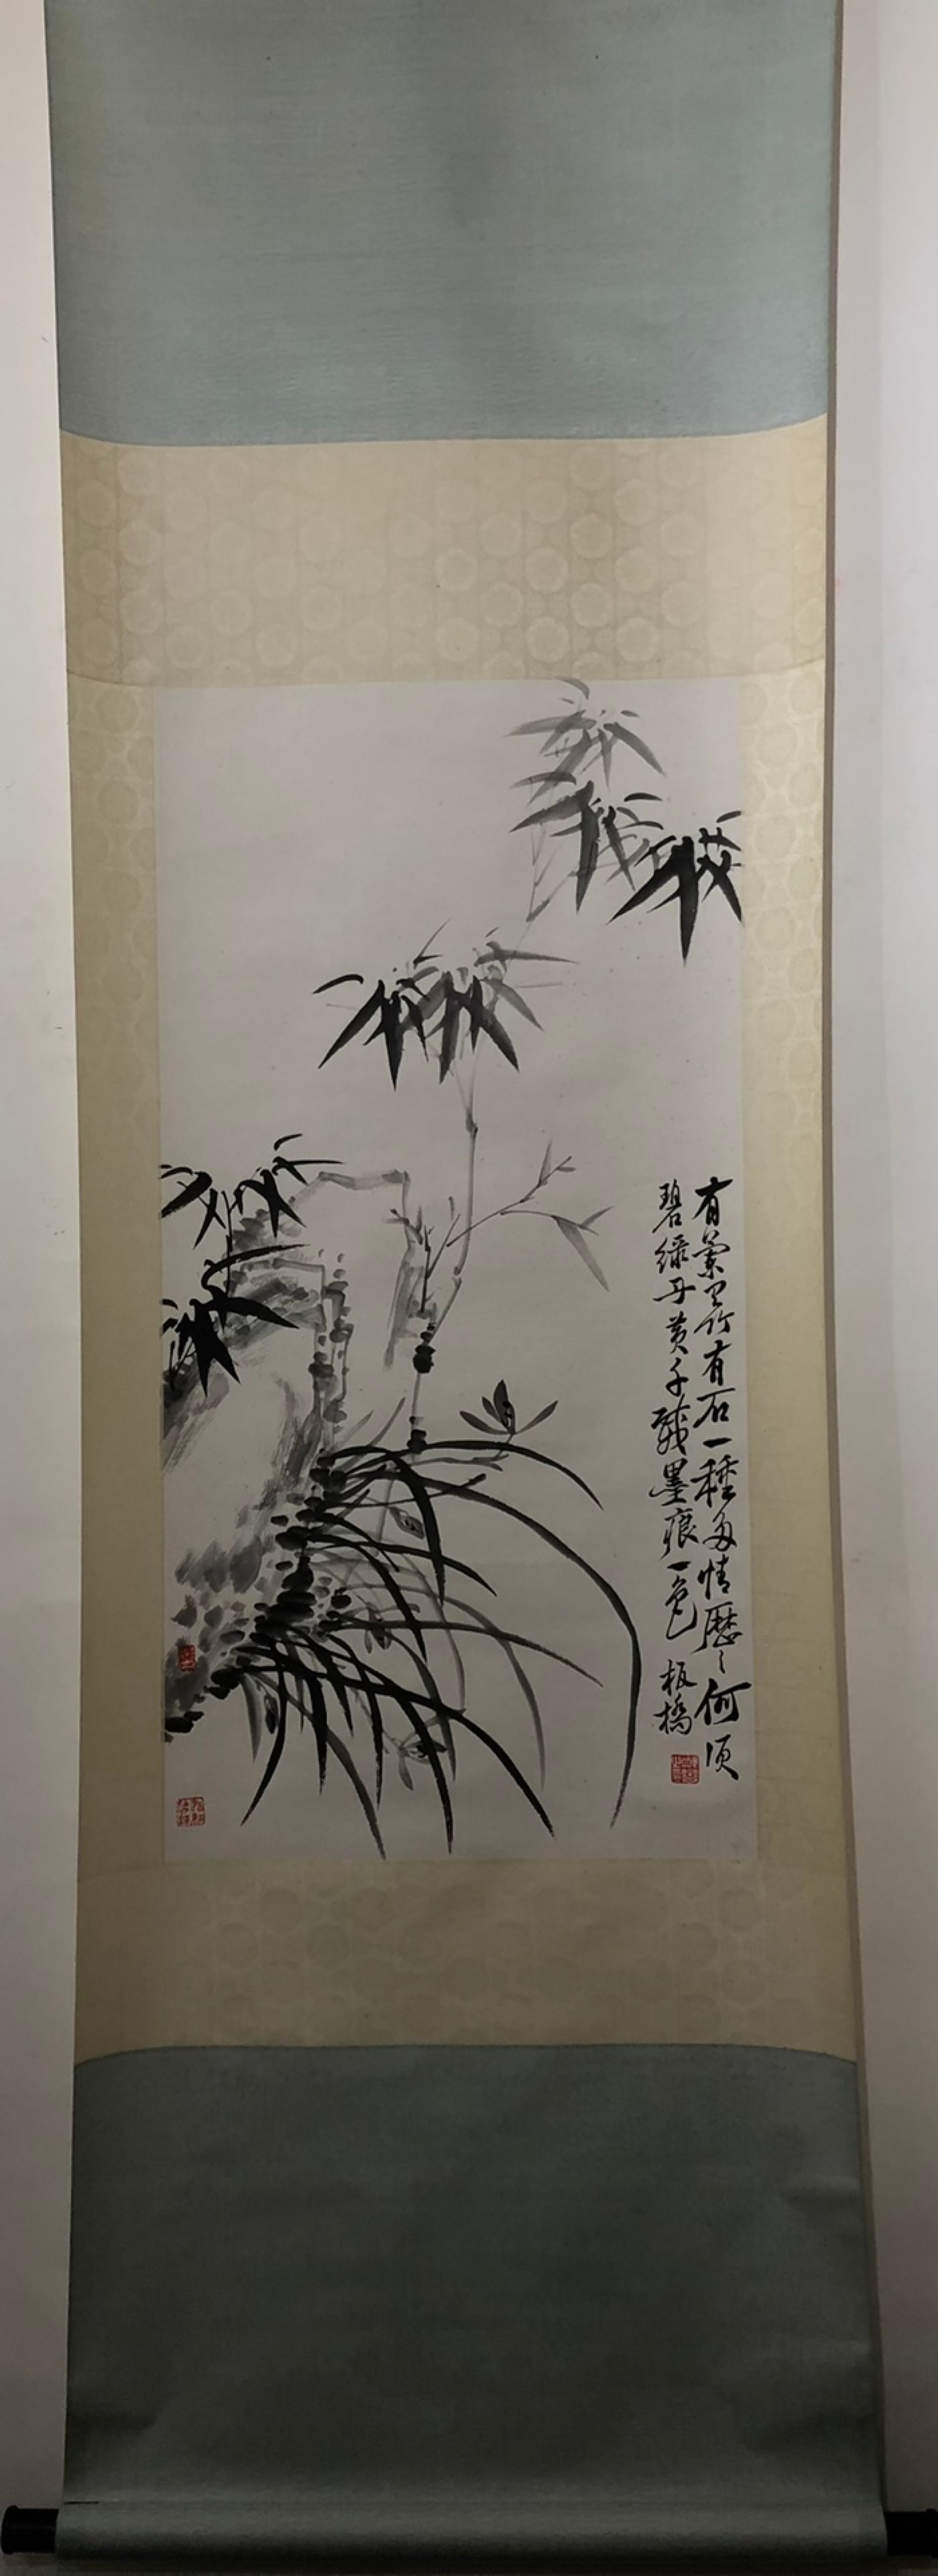 有蘭有竹有石一種多情歷〻何須
碧綠丹黃千載墨痕一色
板橋